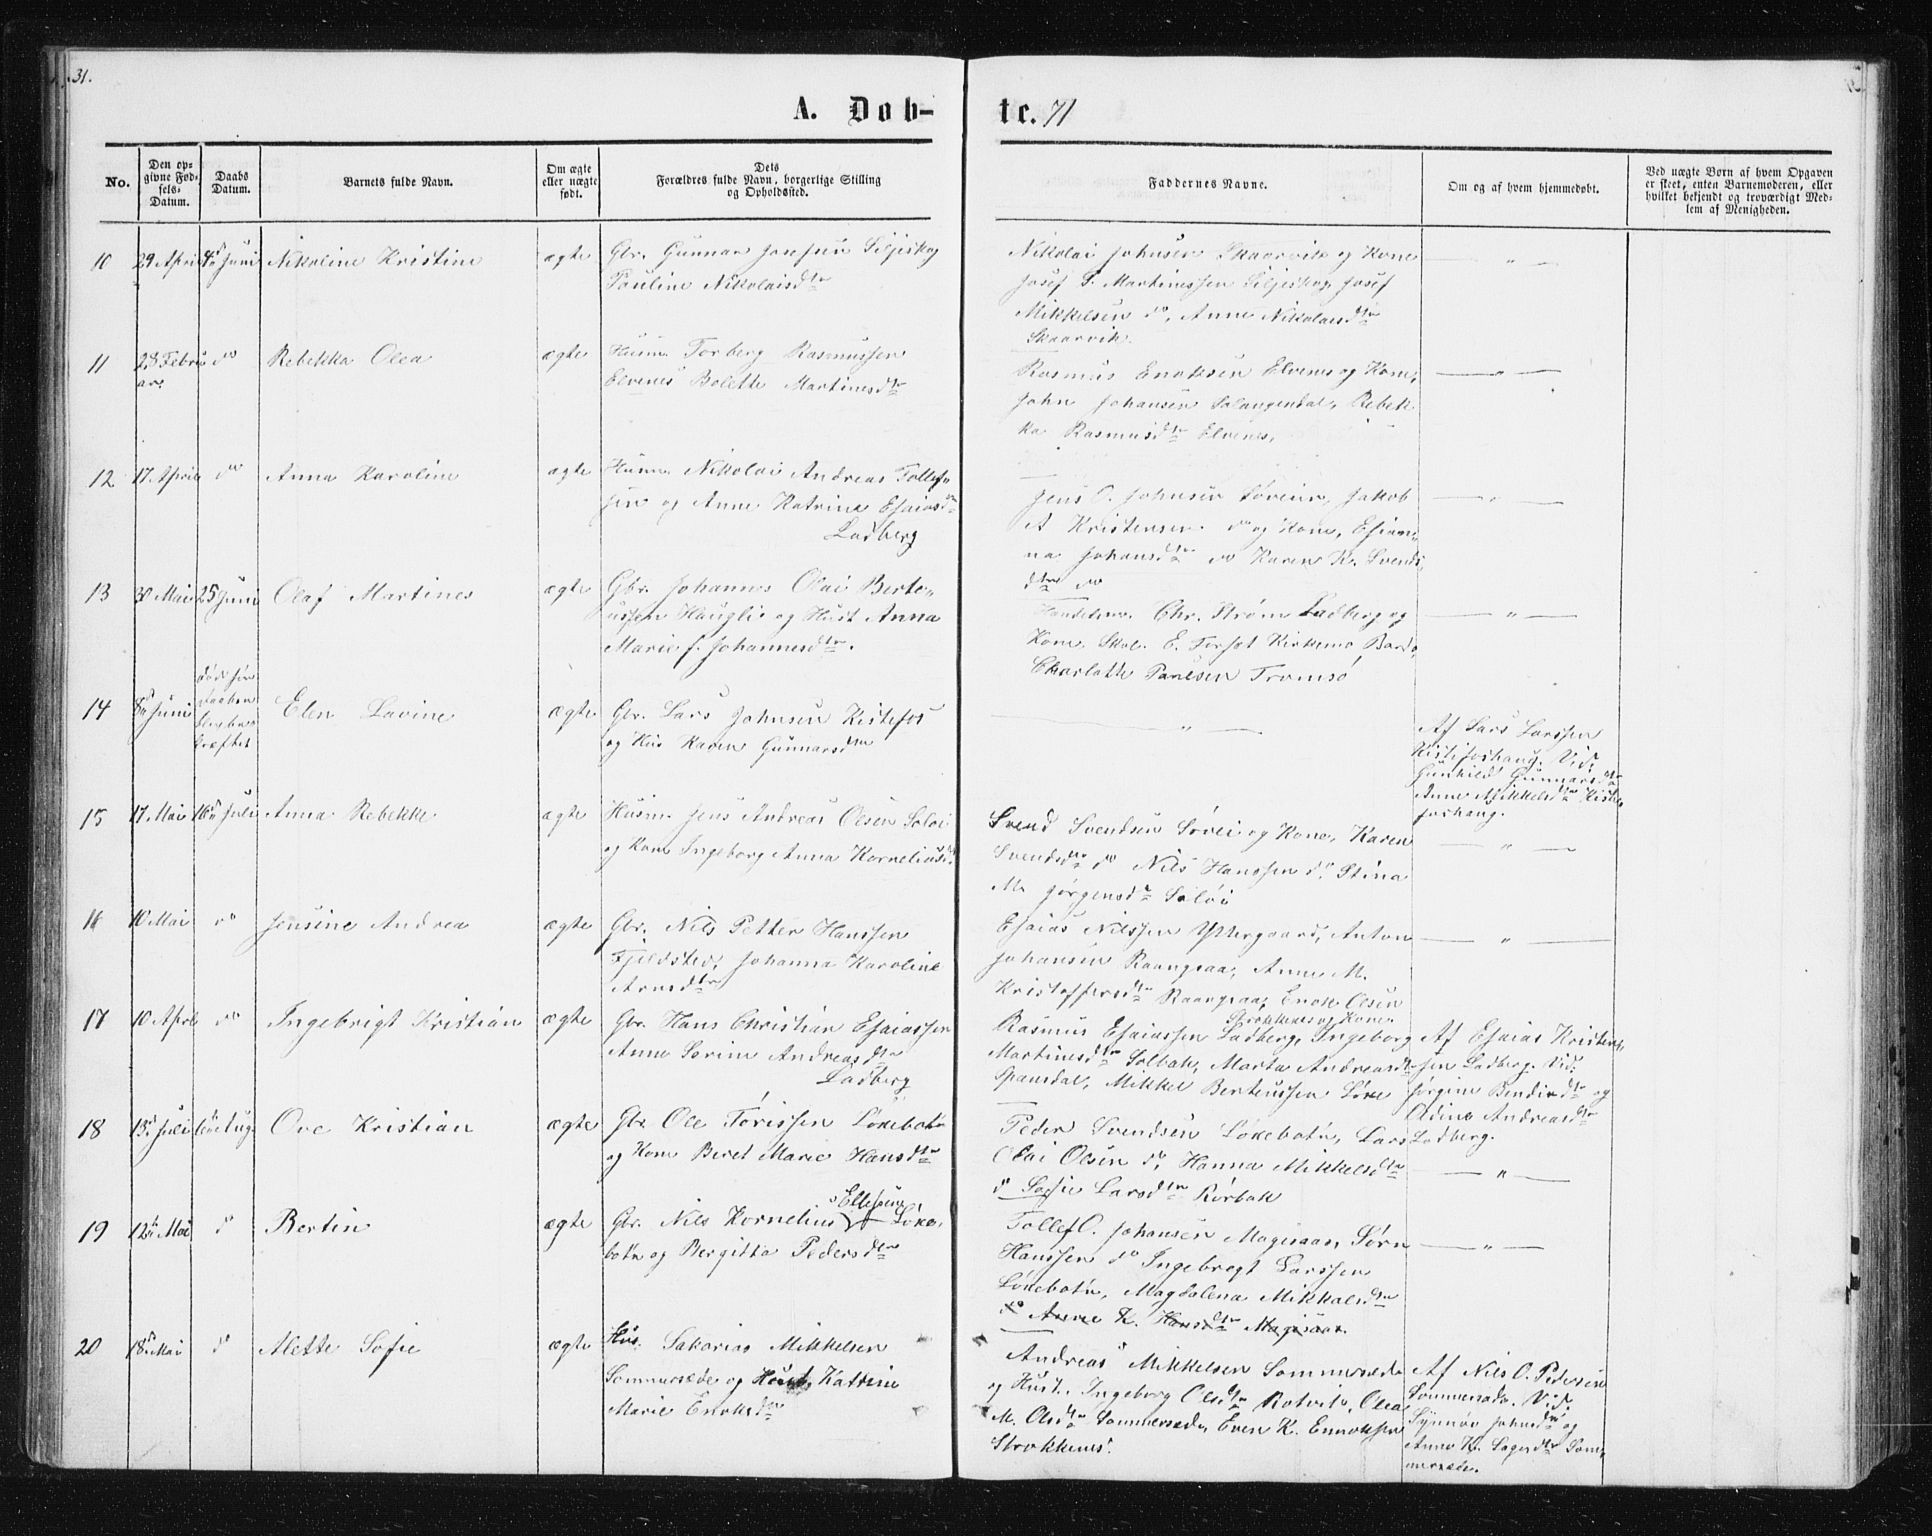 31.
A. Døb-
te. 71
No.
Den op-
givne Fød-
sels-
Datum.
Daabs
Datum.
Barnets fulde Navn.
Om ægte
eller uægte
født.
Dets
Forældres fulde Navn, borgerlige Stilling
og Opholdsted.
Faddernes Navne.
Om og af hvem hjemmedøbt.
Ved uægte Børn af hvem Opgaven
er skeet, enten Barnemoderen, eller
hvilket bekjendt og troværdigt Med-
lem af Menigheden.
10 29 April 4de Juni Nikoline Kristine ægte Gbr. Gunnar Josefsen Siljeskog
Pauline Nikolaisdtr
Nikolai Johnsen Skaarvik og Kone — " —
Josef S. Martinussen Siljeskog, Josef
Mikkelsen do, Anne Nikolaisdtr
Skaarvik.
11 28 Febru
ar. do Rebekka Olea ægte Husm. Torberg Rasmussen
Elvenes Bolette Martinesdtr
Rasmus Enoksen Elvenes og Kone, — " —
John Johansen Salangendal, Rebek-
ka Rasmusdtr Elvenes.
12 17 April do Anna Karoline ægte Husm. Nikolai Andreas Tollef-
sen og Anne Katrine Esaiasdtr
Ladberg
Jens O. Johnsen Søveien, Jakob — " —
A Kristensen do og Kone,
na Johansdtr do Karen K. Svends
dtr do
13 30 Mai 25 Juni Olaf Martines ægte Gbr. Johannes Olai Berte-
ussen Hauglie og Hust Anna
Marie f. Johannesdtr.
Handelsm. Chr. Strøm Ladberg og — " —
Kone, Skol. E. Forset Kirkemo Bardo,
Charlotte Paulsen Tromsø
14 8de Juni død før
Daaben
bekræftet Elen Lavine ægte Gbr. Lars Johnsen Kistefos
og Hus Karen Gunnarsdtr
— " —
Af Lars Larssen
Kistefoshaug. Vid.
Gunhild Gunnarsdtr
Anne Mikkelsdtr Kiste-
foshaug.
15 17 Mai 16de Juli Anna Rebekke ægte Husm. Jens Andreas Olsen Soløi
og Kone Ingeborg Anna Korneliusdtr
Svend Svendsen Søvei og Kone, Karen — " —
Svendsdtr do Nils Hanssen do Stina
M. Jørgensdtr Soløi
16 10 Mai do Jensine Andrea ægte Gbr. Nils Petter Hanssen
Fjeldsted, Johanna Karoline
Arnsdtr
Esaias Nilssen Yttergaard, Anton — " —
Johansen Raangsaa, Anne M.
Kristoffersdtr Raangsaa, Enok Olsen
Strokkenes og Kone.
17 10 April do Ingebrigt Kristian ægte Gbr. Hans Christian Esaiassen
Anne Sørine Andreasdtr
Ladberg
Rasmus Esaiassen Ladberg, Ingeborg
Martinesdtr Solbak, Marta Andreasdtr
Spansdal, Mikkel Berteussen Løve
Af Esaias Kristen-
sen Ladberg. Vid.
Jørgine Bendixdtr og
Odine Andreasdtr
Ladberg.
18 13de Juli 6te Aug. Ove Kristian ægte Gbr Ole Torissen Løksebotn
og Kone Beret Marie Hansdtr
Peder Svendsen Løksebotn, Lars
Olai Olsen do, Hanna Mikkelsdtr — " —
do Sofie Larsdtr Rørbak
19 12te Mai do Bertin ægte Gbr. Nils Kornelius Ellefsen Løkse-
botn og Bergitta Pedersdtr
Tollef O. Johansen Magisaas, Sørn — " —
Hanssen do Ingebrigt Larssen
Løksebotn, Magdalena Mikkalsdtr
do Anne K. Hansdtr Magisaas.
20 18de Mai do Alette Sofie ægte Hus. Sakarias Mikkelsen
Sommersæde og Hust. Katrine
Marie Enoksdtr
Andreas Mikkelsen Sommersæde
og Hust., Ingeborg Olsdtr Rotvik, Olea
M. Olsdtr Sommersæde, Even K. Ennoksen
Strokkenes.
Af Nils O. Pedersen
Sommersæde. Vid.
Synnøv Johnsdtr og
Anne K. Sagardtr Som-
mersæde.